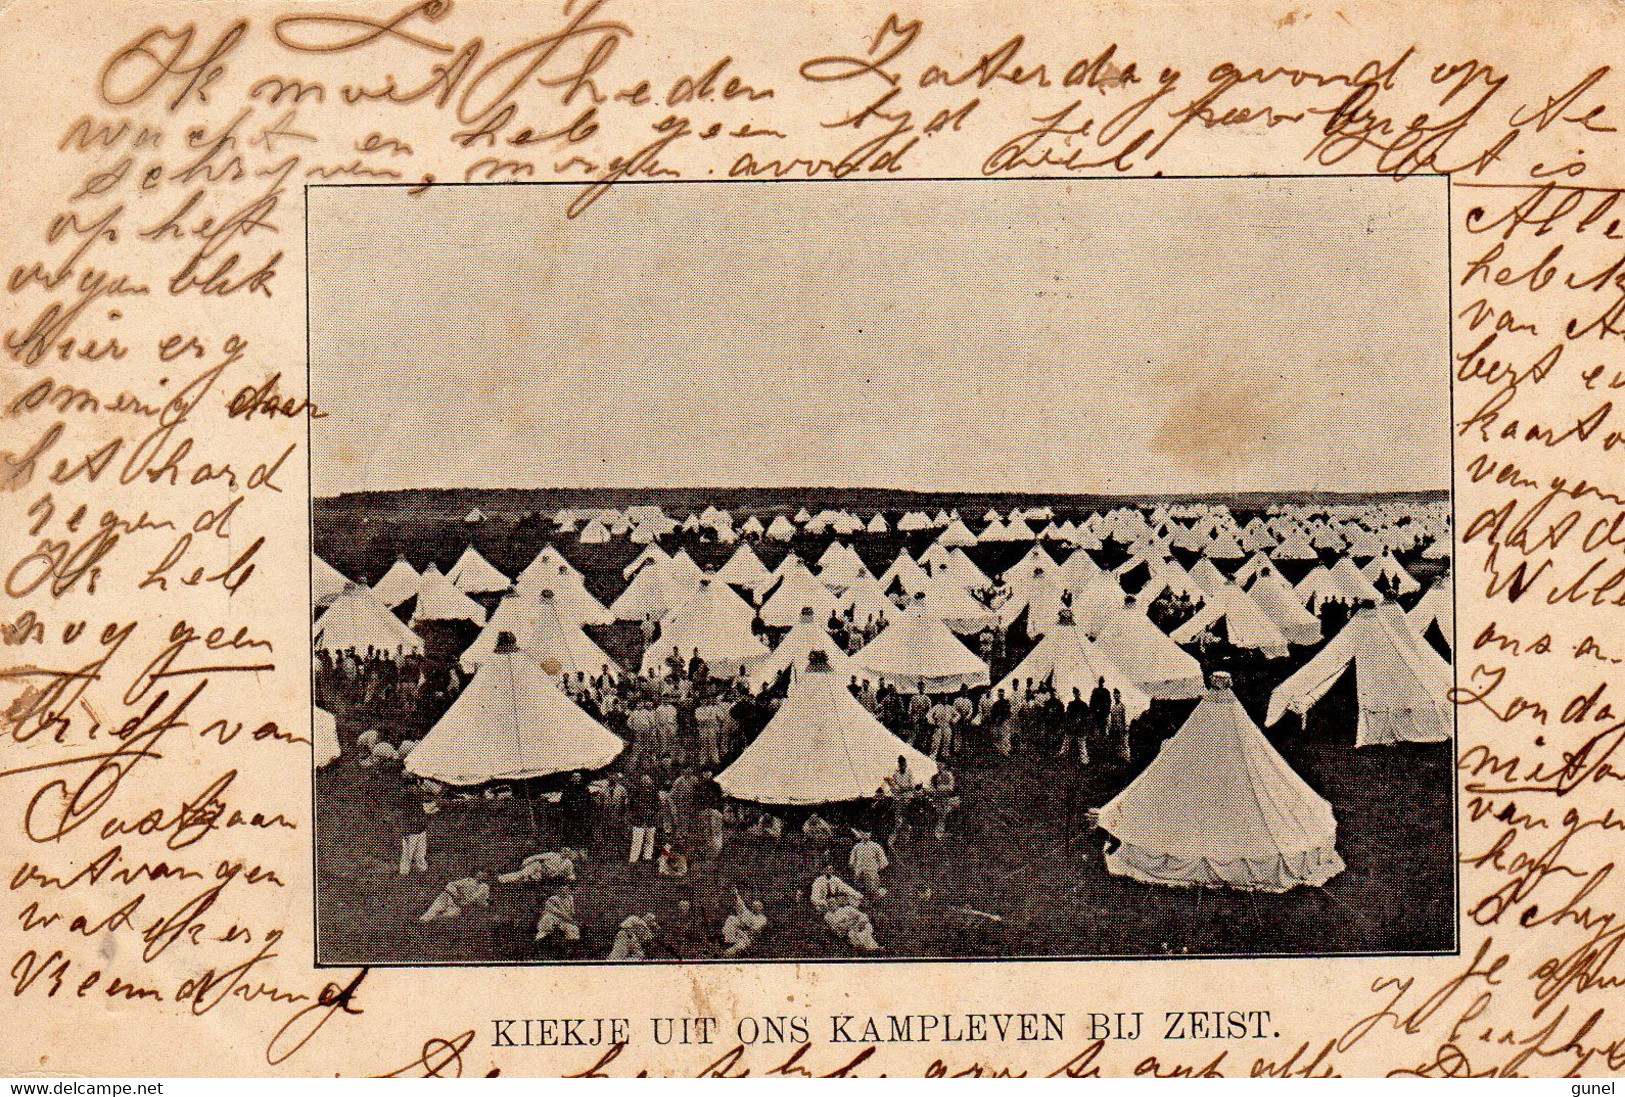 Ik moet heden Zaterdag avond op
wacht en heb geen tyd je brief te
schrijven, morgen avond wel. Het is
op het
oogenblik
hier erg
smerig daar
het hard
regend
Ik heb
nog geen
brief van
Oostzaan
ontvangen
wat ik erg
vreemd vind
Alle
heb ik
van Al
bert ee
kaart o
vangen
dat d
Wille
ons a.
Zonda
niet o
van ge
kan
Schry
je spo
KIEKJE UIT ONS KAMPLEVEN BIJ ZEIST.
De hartelyke groete aut alle
delcampe.net
gunel